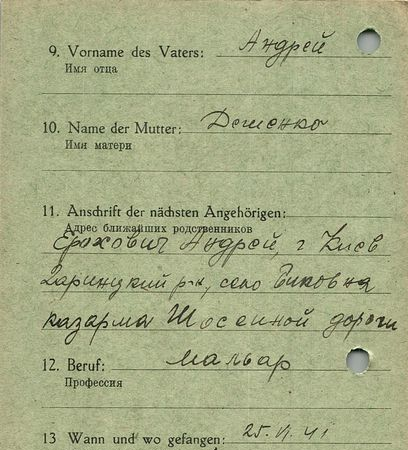 9. Vorname des Vaters: Андрей
Имя отца
10. Name der Mutter: Деменко
Имя матери
11. Anschrift der nächsten Angehörigen:
Адрес ближайших родственников
Ерохович Андрей, г Киев
Дарницкий р-н, село Биковня
казарма Шосейной дороги
12. Beruf: маляр
Профессия
13 Wann und wo gefangen: 25.VI.41